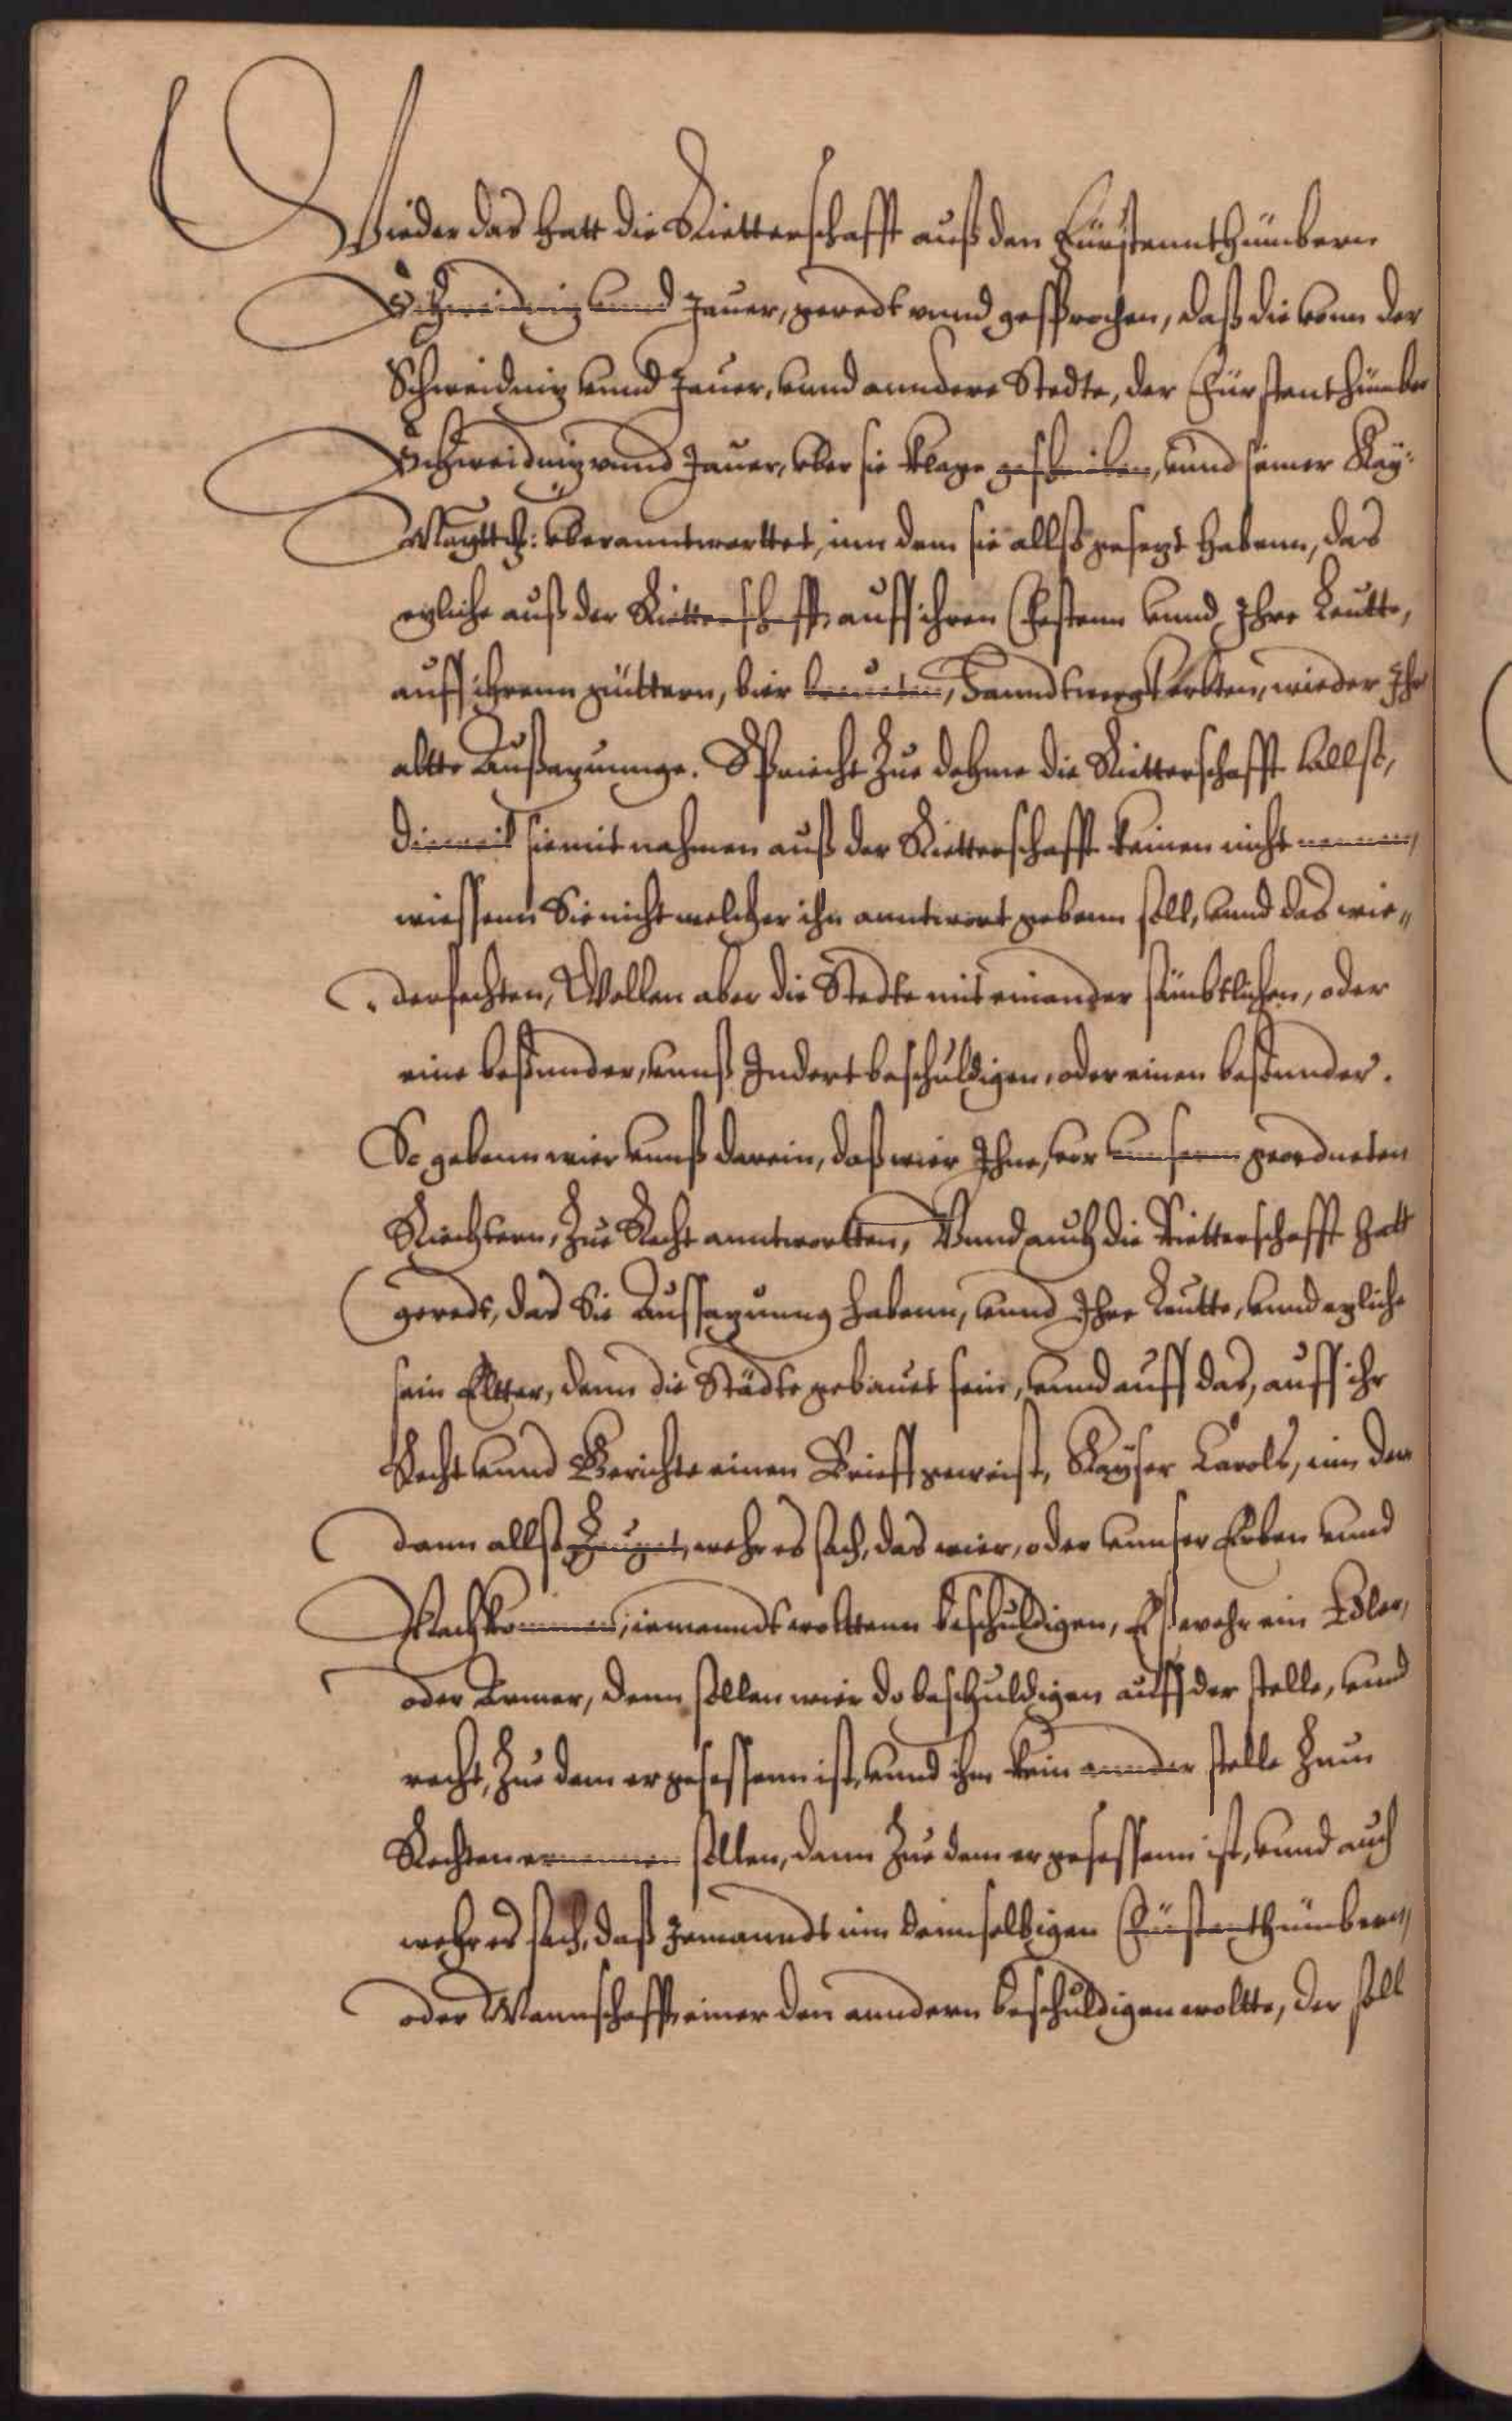 Wieder das hatt die Ritterschafft auß den Fürstennthümbern
Schweidniz vnnd Jauer, geredt vnnd gesprochen, daß die vonn der
Schweidniz vnnd Jauer, vnnd anndere Stedte, der Fürstenthümber
Schweidniz vnnd Jauer, vber sie klage geschrieben, vnnd seiner Kay:
Maytt: vberanntwortet, inn dem sie allso gesezt habenn, das
ezliche auß der Ritterschafft auff ihren Vestenn vnnd Ihre Leutte,
auff ihrenn güttern, bier breueten, Hanndtwergk erbten, wieder Ihr
altte Außazunnge. Spricht Zue dehme die Ritterschafft allso,
dieweil sie mit nahmen auß der Ritterschafft keinen nicht nennen,
wiessenn Sie nicht welcher ihn anntwort gebenn soll, vnnd das wie„
„derfechten, Wollen aber die Stedte mit einander sämbtlichen, oder
eine besonnder, vnnß Indert beschuldigen, oder einen besonnder.
So gebenn wier vnnß darein, daß wier Ihne, vor vnnsern geordneten
Richtern, Zue Recht anntwortten, Vnnd auch die Ritterschafft hatt
geredt, das Sie Aussazunng habenn, vnnd Ihre Leutte, vnnd ezliche
sein Elter, denn die Städte gebauet sein, vnnd auff das, auff ihr
Recht vnnd Gerichte einen Brieff geweist, Kayser Carols, inn der
dann allso Zeuget, wehr es sach, das wier, oder vnnser Erben vnnd
Nachkommen, iemanndt wolttenn beschuldigen, Eß wehr ein Edler,
oder Armer, denn sollen wier do beschuldigen auff der stelle, vnnd
recht, Zue dem er gesessenn ist, vnnd ihm kein annder stelle Zum
Rechten ernennen sollen, dann Zue dem er gesessenn ist, vnnd auch
wehr es sach, daß Jemanndt inn dennselbigen Fürstenthümbern,
oder Mannschafft, einer den anndern beschuldigen woltte, der soll